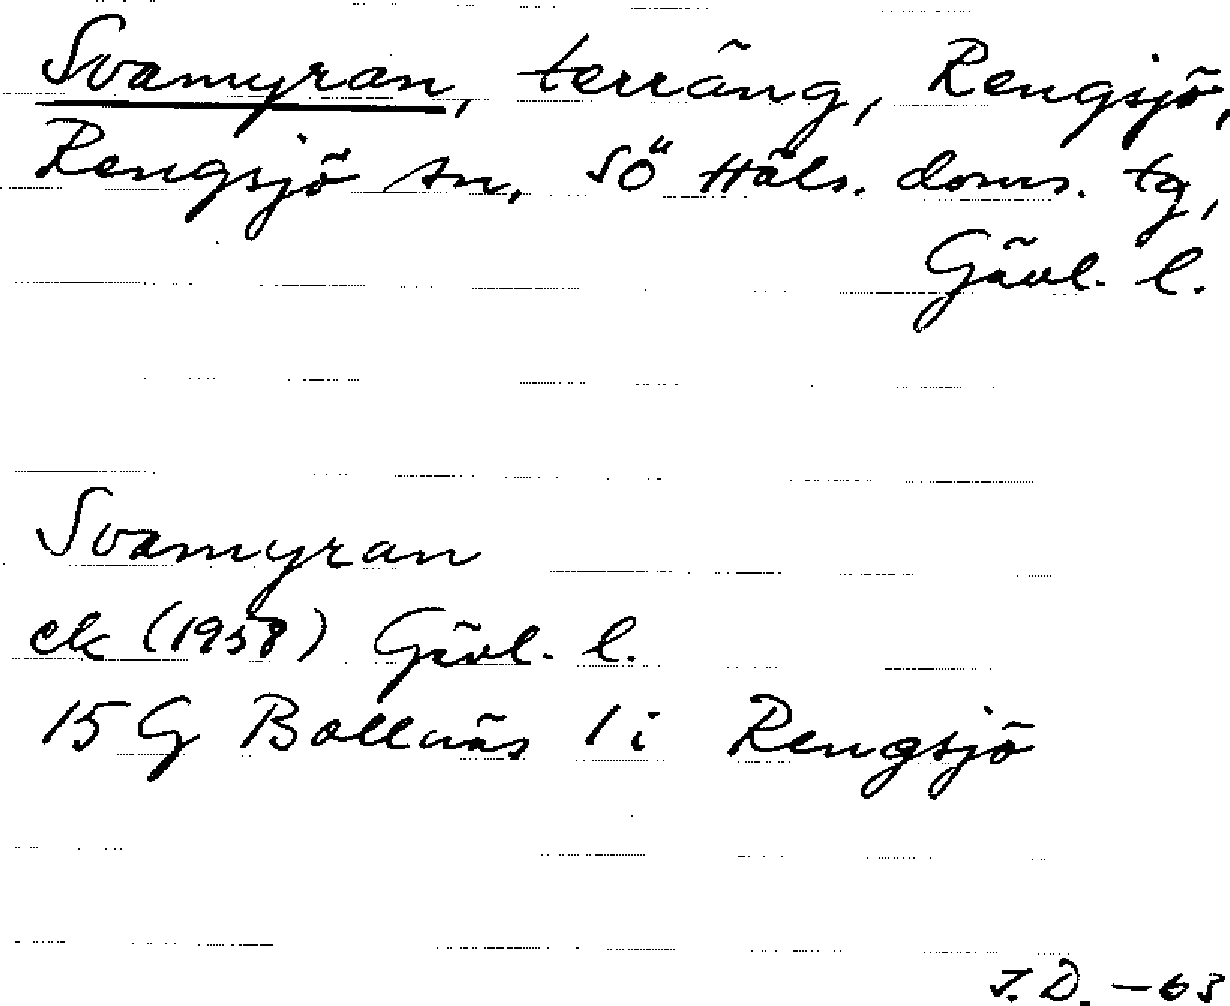 Svamyran, terräng, Rengsjö,
Rengsjö sn, SÖ Häls. doms. tg,
Gävl. l.
Svamyran
ek (1958) Gävl. l.
15 G Bollnäs 1 i Rengsjö
J.D. -63